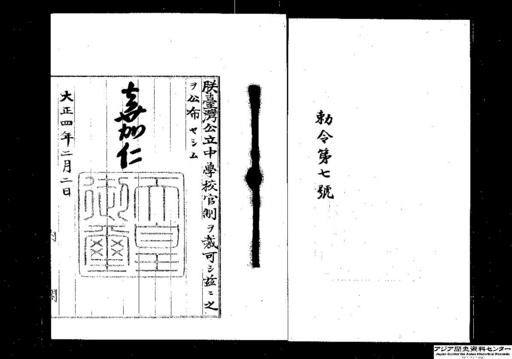 勅令第七號
朕臺灣公立中學校官制ヲ裁可シ茲ニ之
ヲ公布セシム
嘉仁
天皇御璽
大正四年二月二日
内閣
アジア歴史資料センター
Japan Center for Asian Historical Records